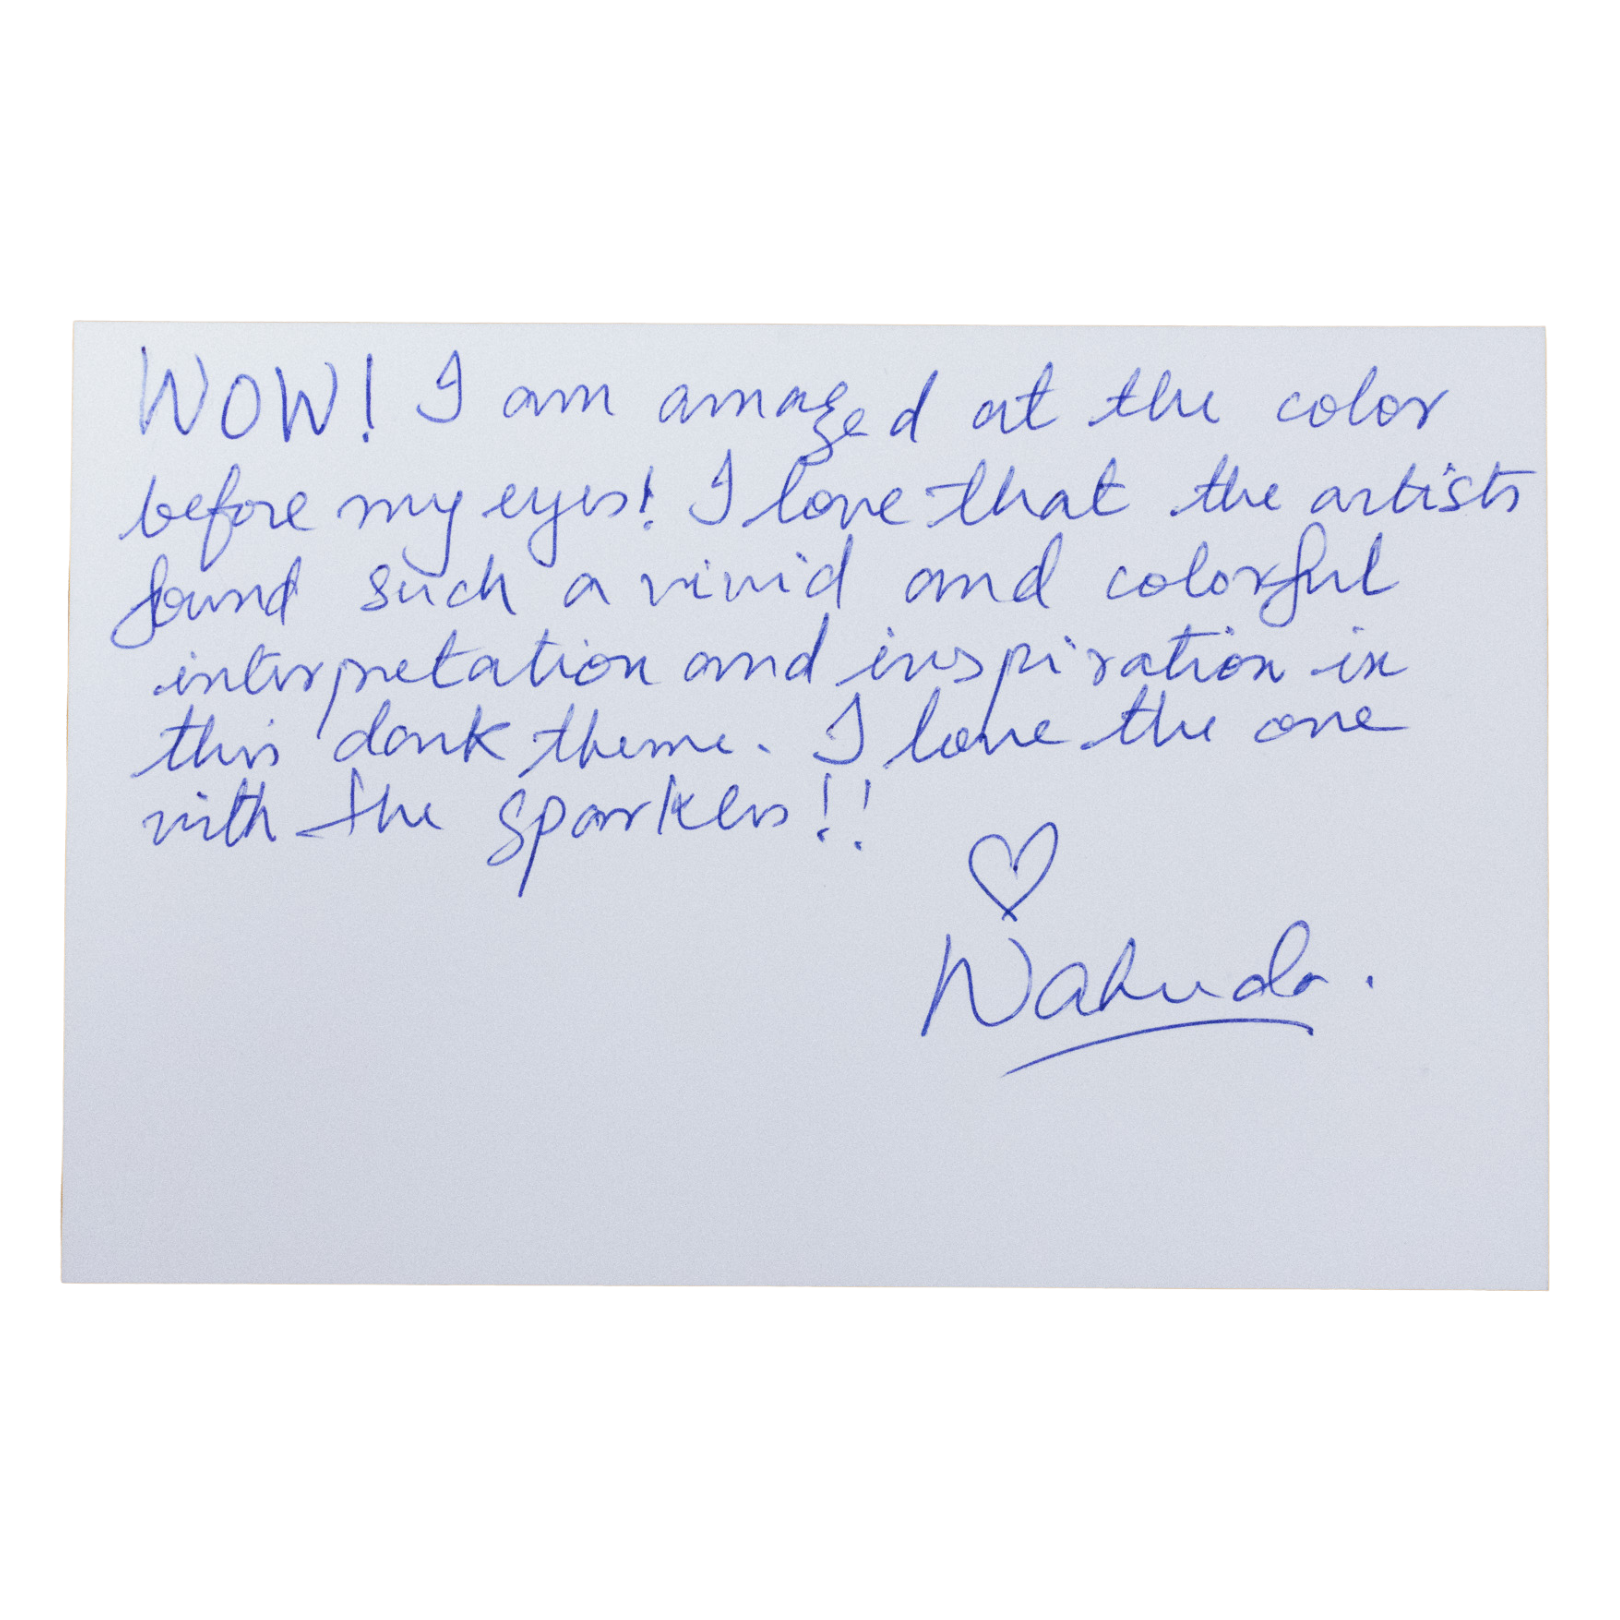 WOW! I am amazed at the color
before my eyes! I love that the artists
found such a vivid and colorful
interpretation and inspiration in
this dark theme. I love the one
with the sparklers!!